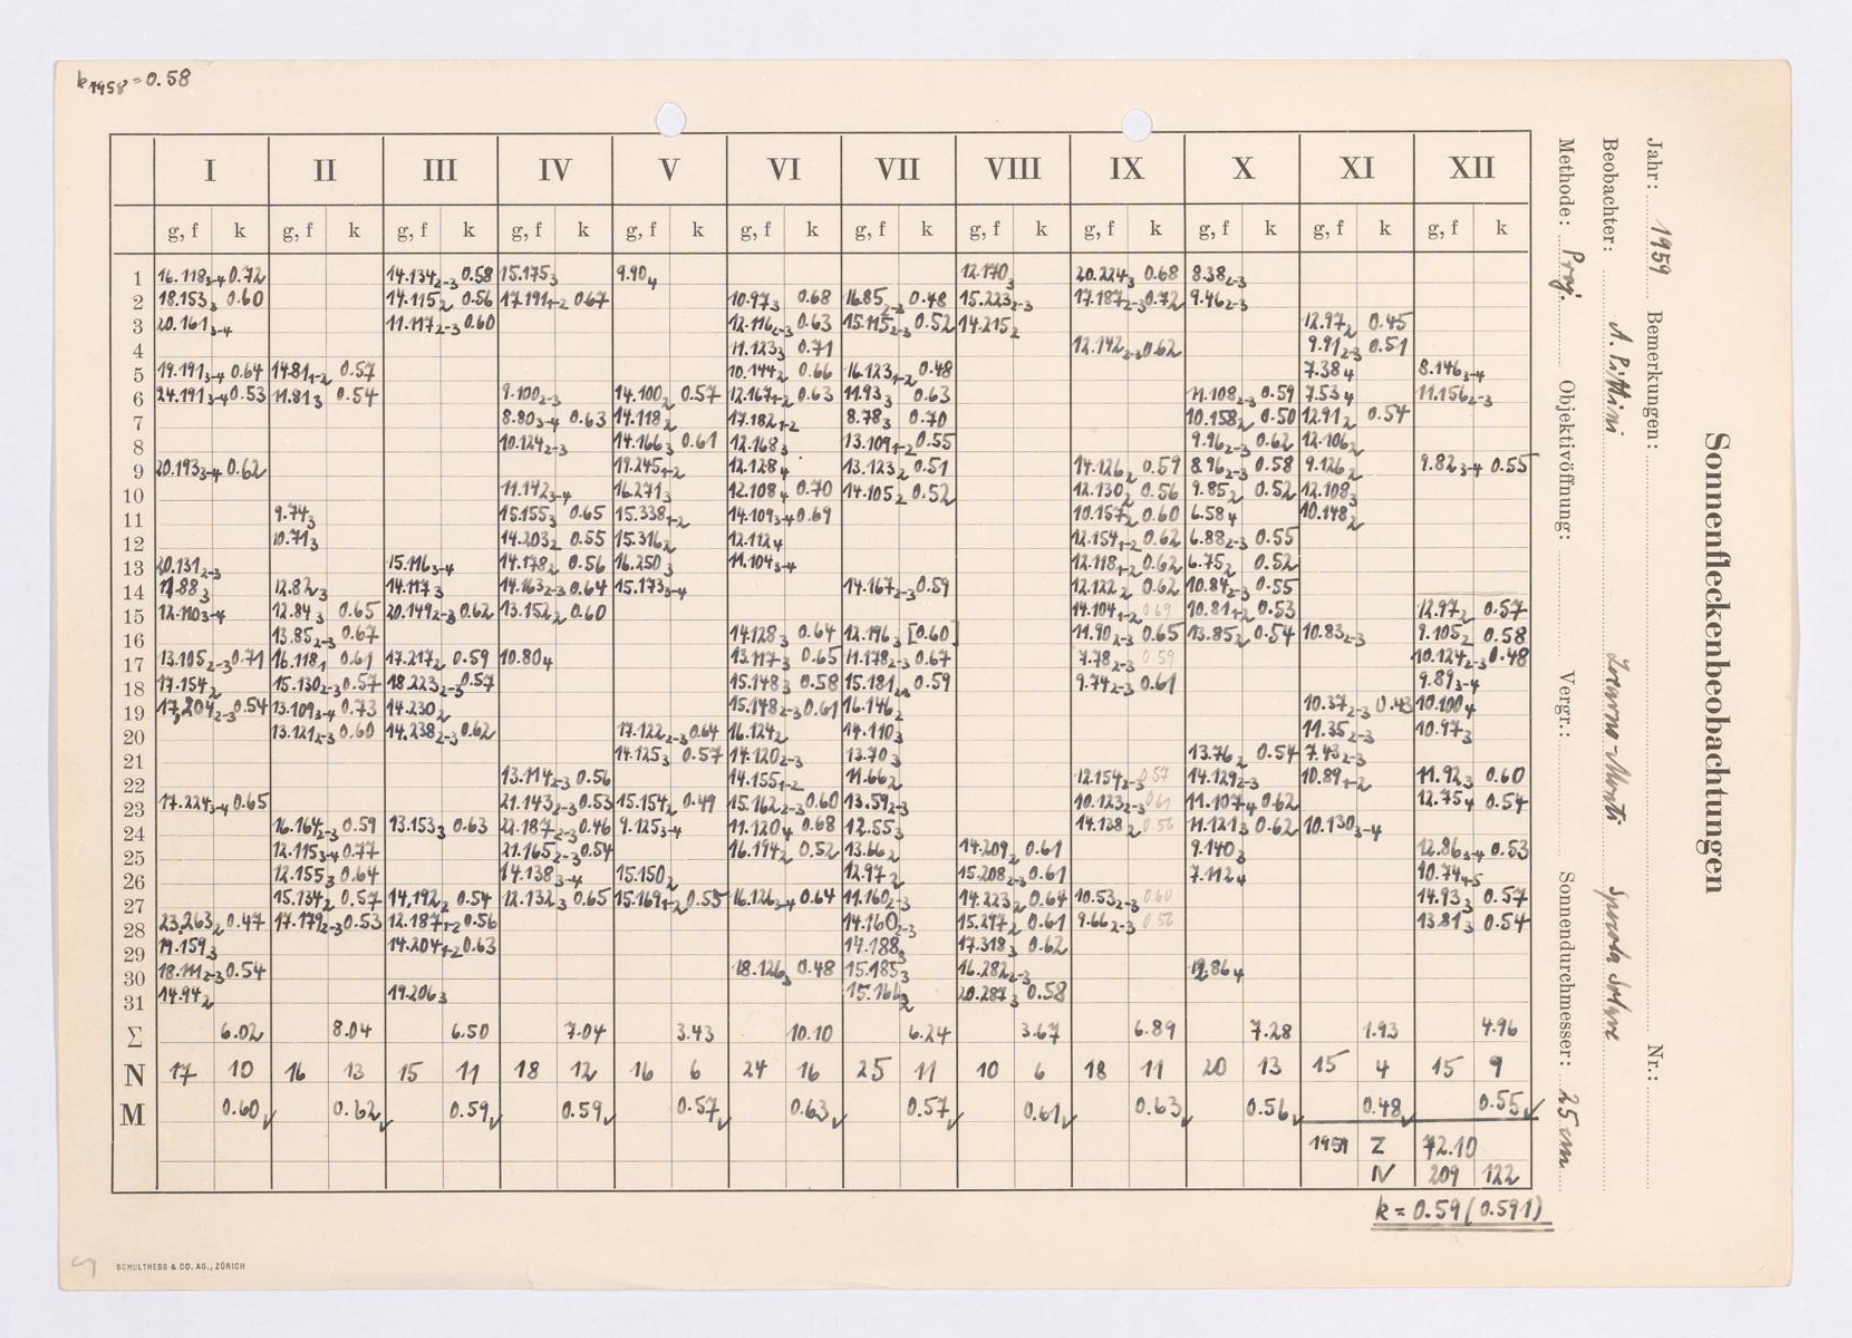 k1958=0.58
Sonnenfleckenbeobachtungen
Jahr: 1959 Bemerkungen: Nr.:
Beobachter: A. Pittini Locarno-Monti Specola Solare
Methode: Proj. Objektivöffnung: Vergr.: Sonnendurchmesser: 25 cm
I II III IV V VI VII VIII IX X XI XII
g, f k g, f k g, f k g, f k g, f k g, f k g, f k g, f k g, f k g, f k g, f k g, f k
1 16.118 3-4 0.72 14.134 2-3 0.58 15.175 3 9.90 4 12.170 3 20.224 3 0.68 8.38 2-3
2 18.153 3 0.60 14.115 2 0.56 17.191 1-2 0.67 10.97 3 0.68 16.85 2-3 0.48 15.223 2-3 17.187 2-3 0.72 9.46 2-3
3 20.161 3-4 11.117 2-3 0.60 12.116 2-3 0.63 15.115 2-3 0.52 14.215 2 12.97 2 0.45
4 11.123 3 0.71 12.142 2-3 0.62 9.91 2-3 0.51
5 19.191 3-4 0.64 14.81 1-2 0.57 10.144 2 0.66 16.123 1-2 0.48 7.38 4 8.146 3-4
6 24.191 3-4 0.53 11.81 3 0.54 9.100 2-3 14.100 2 0.57 12.167 1-2 0.63 11.93 3 0.63 11.108 2-3 0.59 7.53 4 11.156 2-3
7 8.80 3-4 0.63 14.118 2 17.182 1-2 8.78 3 0.70 10.158 2 0.50 12.91 2 0.54
8 10.124 2-3 14.166 3 0.61 12.168 3 13.109 1-2 0.55 9.96 2-3 0.62 12.106 2
9 20.193 3-4 0.62 19.245 1-2 12.128 4 13.123 2 0.51 14.126 2 0.59 8.96 2-3 0.58 9.126 2 9.82 3-4 0.55
10 11.142 3-4 16.271 3 12.108 4 0.70 14.105 2 0.52 12.130 2 0.56 9.85 2 0.52 12.108 3
11 9.74 3 15.155 3 0.65 15.338 1-2 14.109 3-4 0.69 10.157 2 0.60 6.58 4 10.148 2
12 10.71 3 14.203 2 0.55 15.316 2 12.112 4 12.154 1-2 0.62 6.88 2-3 0.55
13 20.131 2-3 15.116 3-4 14.178 2 0.56 16.250 3 11.104 3-4 12.118 1-2 0.62 6.75 2 0.52
14 11.88 3 12.82 3 14.117 3 14.163 2-3 0.64 15.173 3-4 14.167 2-3 0.59 12.122 2 0.62 10.84 2-3 0.55
15 12.110 3-4 12.84 3 0.65 20.149 2-3 0.62 13.152 2 0.60 14.104 1-2 0.69 10.81 1-2 0.53 12.97 2 0.57
16 13.85 2-3 0.67 14.128 3 0.64 12.196 3 [0.60] 11.90 2-3 0.65 13.85 2 0.54 10.83 2-3 9.105 2 0.58
17 13.105 2-3 0.71 16.118 1 0.61 17.217 2 0.59 10.80 4 13.117 3 0.65 11.178 2-3 0.67 7.78 2-3 0.59 10.124 2-3 0.48
18 17.154 2 15.130 2-3 0.57 18.223 2-3 0.57 15.148 3 0.58 15.181 2-3 0.59 9.74 2-3 0.61 9.89 3-4
19 17,204 2-3 0.54 13.109 3-4 0.73 14.230 2 15.148 2-3 0.61 16.146 2 10.37 2-3 0.43 10.100 4
20 13.121 2-3 0.60 14.238 2-3 0.62 17.122 2-3 0.64 16.124 2 14.110 3 11.35 2-3 10.97 3
21 14.125 3 0.57 14.120 2-3 13.70 3 13.76 2 0.54 7.43 2-3
22 13.114 2-3 0.56 14.155 1-2 11.66 2 12.154 2-3 0.57 14.129 2-3 10.89 1-2 11.92 3 0.60
23 17.224 3-4 0.65 21.143 2-3 0.53 15.154 2 0.49 15.162 2-3 0.60 13.59 2-3 10.123 2-3 0.61 11.107 4 0.62 12.75 4 0.54
24 16.164 2-3 0.59 13.153 3 0.63 22.187 2-3 0.46 9.125 3-4 11.120 4 0.68 12.55 3 14.138 2 0.56 11.121 3 0.62 10.130 3-4
25 12.115 3-4 0.77 21.165 2-3 0.54 16.194 2 0.52 13.66 2 14.209 2 0.61 9.140 3 12.86 3-4 0.53
26 12.155 3 0.64 14.138 3-4 15.150 2 12.97 2 15.208 2-3 0.61 7.112 4 10.74 4-5
27 15.134 2 0.57 14,192 2 0.54 12.132 3 0.65 15.169 1-2 0.55 16.126 3-4 0.64 11.160 2-3 14.223 2 0.64 10.53 2-3 0.60 14.93 3 0.57
28 23,263 2 0.47 17.179 2-3 0.53 12.187 1-2 0.56 14.160 2-3 15.297 2 0.61 9.66 2-3 0.56 13.81 3 0.54
29 19.159 3 14.204 1-2 0.63 14.188 3 17.318 3 0.62
30 18.111 2-3 0.54 18.126 3 0.48 15.185 3 16.282 2-3 12.86 4
31 14.94 2 19.206 3 15.166 2 20.287 3 0.58
Σ 6.02 8.04 6.50 7.04 3.43 10.10 6.24 3.67 6.89 7.28 1.93 4.96
N 17 10 16 13 15 11 18 12 16 6 24 16 25 11 10 6 18 11 20 13 15 4 15 9
M 0.60 0.62 0.59 0.59 0.57 0.63 0.57 0.61 0.63 0.56 0.48 0.55
1959 Σ 72.10
N 209 122
k = 0.59 (0.591)
SCHULTHESS & CO. AG., ZÜRICH